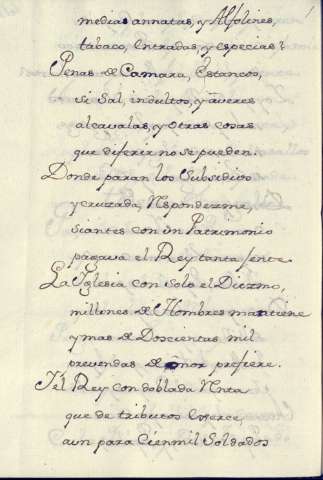 medias annatas, y Alfolines,
tabaco, Entradas, y especias?
Penas de Camara, Estancos,
si Sal, indultos, y averes
alcavalas, y otras cosas
que diferir no se pueden.
Donde paran los Subsidios
y cruzada, Responderme,
si antes con un Patrimonio
pagava el Rey tanta jente
La Iglesia con solo el Diezmo,
millines de Hombres mantiene
y mas de Doscientas mil
prevendas de onor prefiere.
I el Rey con doblada Renta
que de tributos Exerce,
aun para Cien mil Soldados